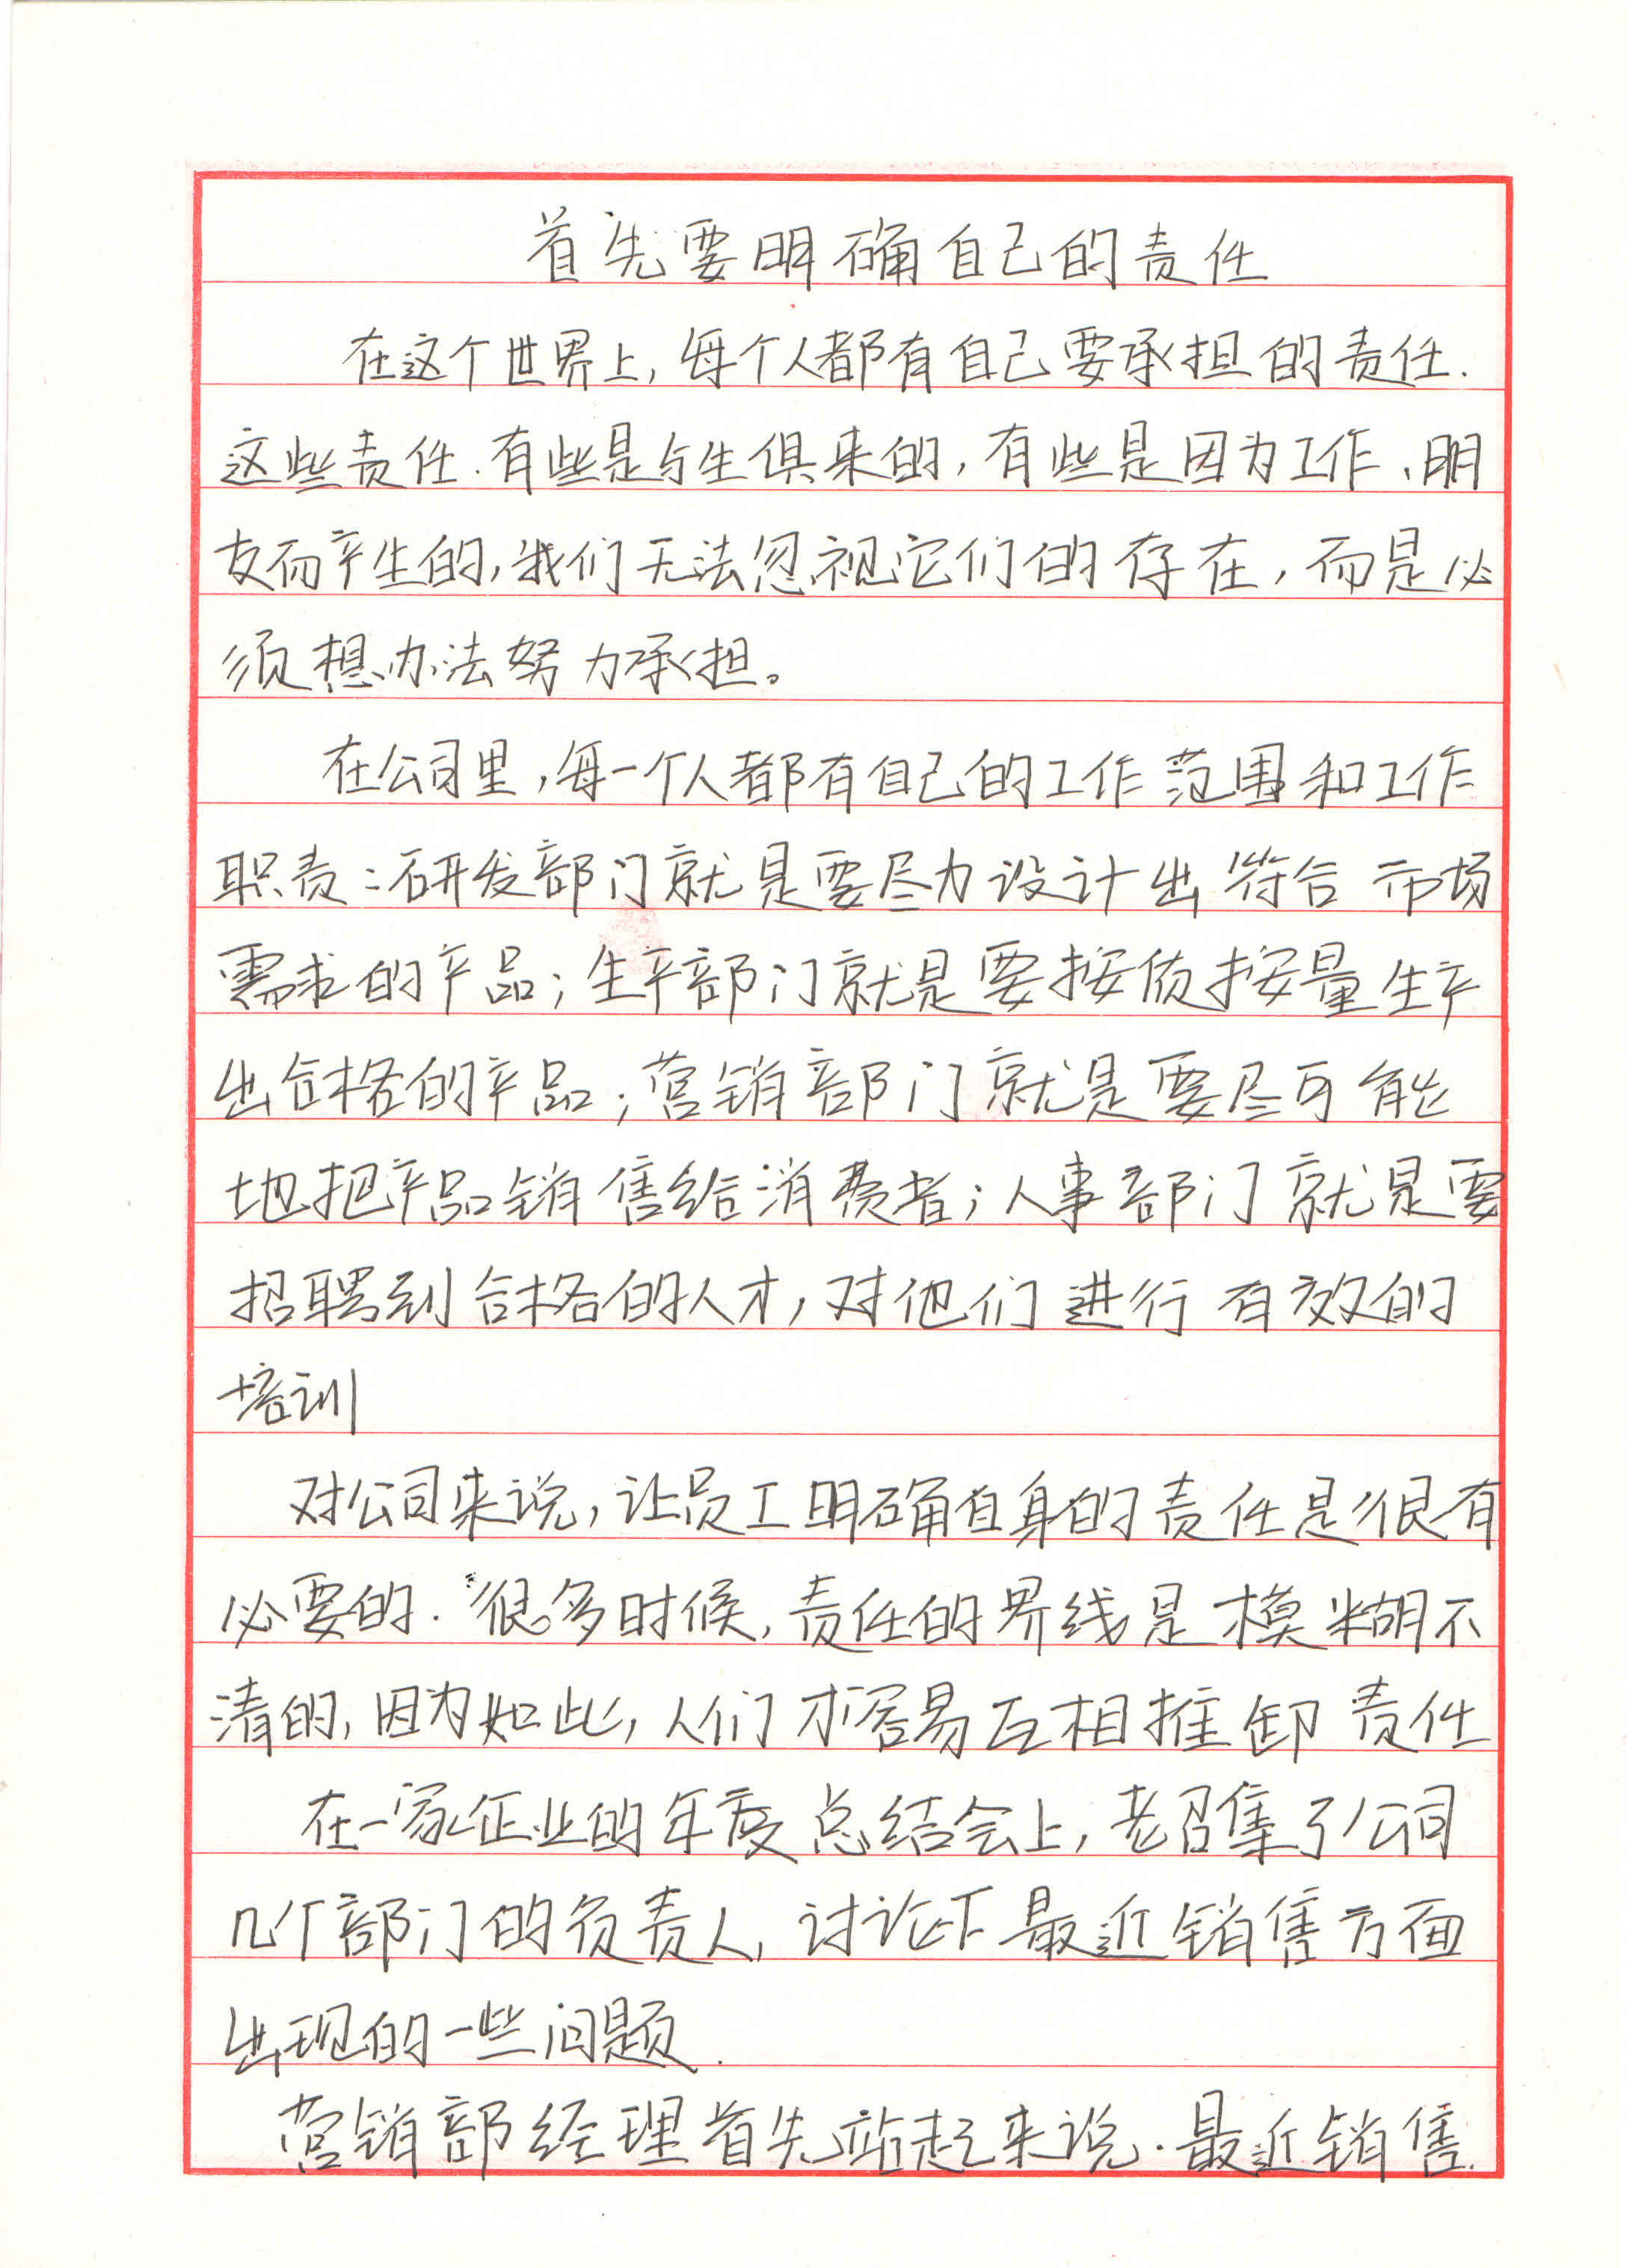 首先要明确自己的责任
在这个世界上,每个人都有自己要承担的责任.
这些责任.有些是与生俱来的,有些是因为工作、朋
友而产生的,我们无法忽视它们的存在,而是必
须想办法努力承担。
在公司里,每一个人都有自己的工作范围和工作
职责:研发部门就是要尽力设计出符合市场
需求的产品;生产部门就是要按质按量生产
出合格的产品;营销部门就是要尽可能
地把产品销售给消费者;人事部门就是要
招聘到合格的人才,对他们进行有效的
培训
对公司来说,让员工明确自身的责任是很有
必要的.很多时候,责任的界线是模糊不
清的,因为如此,人们才容易互相推卸责任
在一家企业的年度总结会上,老召集了公司
几个部门的负责人,讨论下最近销售方面
出现的一些问题.
营销部经理首先站起来说.最近销售.